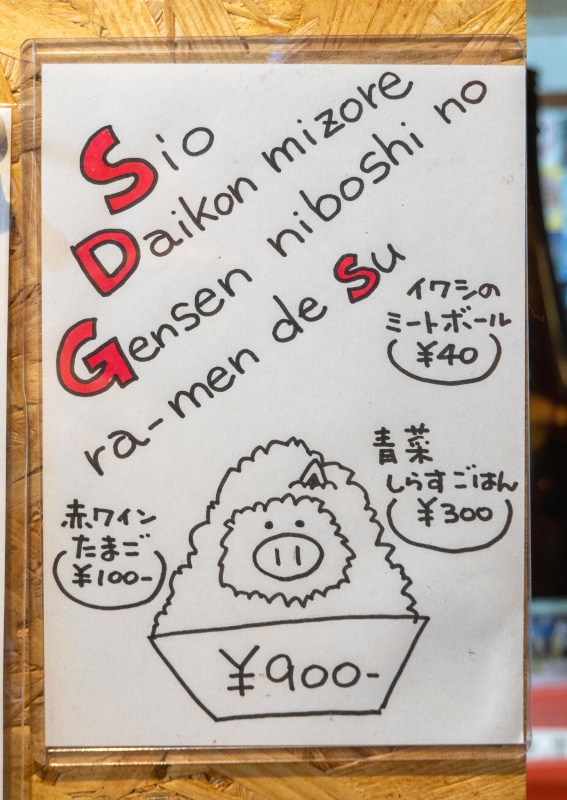 Sio
Daikon mizore
Gensen niboshi no
ra-men de Su
イワシの
ミートボール
¥40
青菜
しらすごはん
¥300
赤ワイン
たまご
¥100-
¥900-